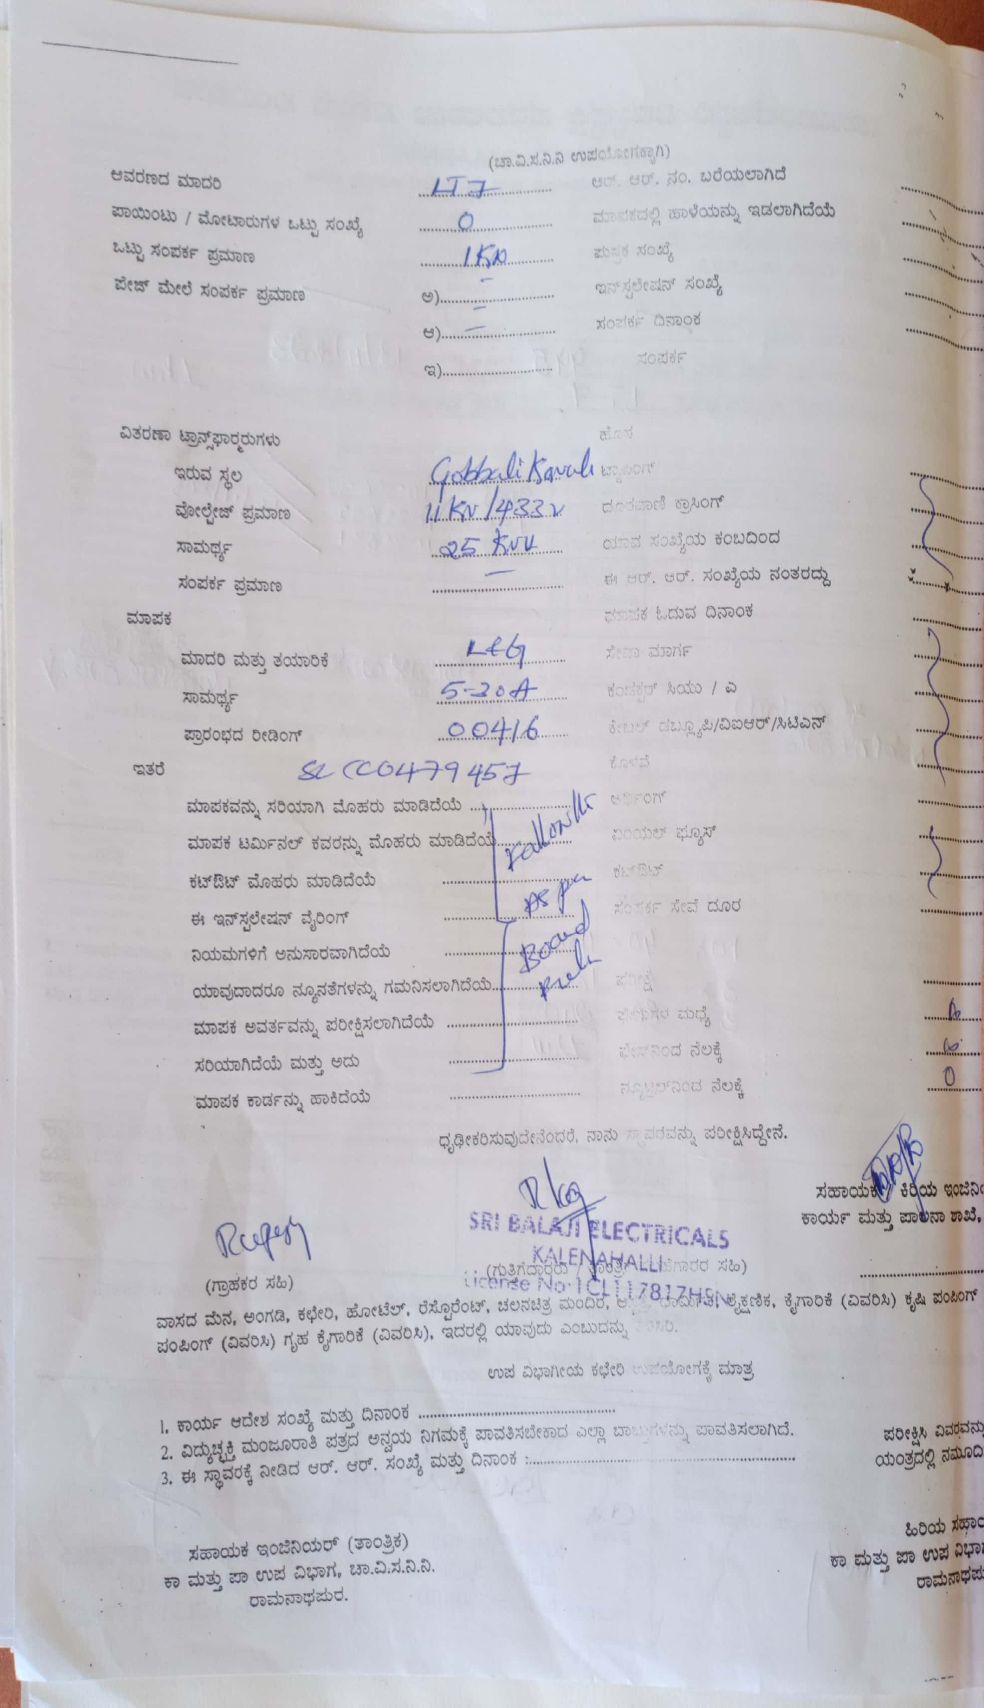 (ಚಾ.ವಿ.ಸ.ನಿ.ನಿ ಉಪಯೋಗಕ್ಕಾಗಿ)
ಆವರಣದ ಮಾದರಿ LT7 ಆರ್. ಆರ್. ನಂ. ಬರೆಯಲಾಗಿದೆ
ಪಾಯಿಂಟು / ಮೋಟಾರುಗಳ ಒಟ್ಟು ಸಂಖ್ಯೆ 0 ಮಾಪಕದಲ್ಲಿ ಹಾಳೆಯನ್ನು ಇಡಲಾಗಿದೆಯೆ
ಒಟ್ಟು ಸಂಪರ್ಕ ಪ್ರಮಾಣ 1 KW ಪುಸ್ತಕ ಸಂಖ್ಯೆ
ಪೇಜ್ ಮೇಲೆ ಸಂಪರ್ಕ ಪ್ರಮಾಣ ಅ) – ಇನ್‌ಸ್ಟಲೇಷನ್ ಸಂಖ್ಯೆ
ಆ) – ಸಂಪರ್ಕ ದಿನಾಂಕ
ಇ) ಸಂಪರ್ಕ
ವಿತರಣಾ ಟ್ರಾನ್ಸ್‌ಫಾರ್‍ಮರುಗಳು ಹೊಸ
ಇರುವ ಸ್ಥಲ Gobbali Kavalu ಟ್ಯಾಪಿಂಗ್
ವೋಲ್ಟೇಜ್ ಪ್ರಮಾಣ 11 KV/433V ದೂರವಾಣಿ ಕ್ರಾಸಿಂಗ್
ಸಾಮರ್ಥ್ಯ 25 KVA ಯಾವ ಸಂಖ್ಯೆಯ ಕಂಬದಿಂದ
ಸಂಪರ್ಕ ಪ್ರಮಾಣ – ಈ ಆರ್. ಆರ್. ಸಂಖ್ಯೆಯ ನಂತರದ್ದು
ಮಾಪಕ ಮಾಪಕ ಓದುವ ದಿನಾಂಕ
ಮಾದರಿ ಮತ್ತು ತಯಾರಿಕೆ L&G ಸೇವಾ ಮಾರ್ಗ
ಸಾಮರ್ಥ್ಯ 5-20A ಕಂಡಕ್ಟರ್ ಸಿಯು / ಎ
ಪ್ರಾರಂಭದ ರೀಡಿಂಗ್ 00416 ಕೇಬಲ್ ಡಬ್ಲ್ಯೂಪಿ/ವಿಐಆರ್/ಸಿಟಿಎನ್
ಇತರೆ SL CC0479457 ಕೊಳವೆ
ಮಾಪಕವನ್ನು ಸರಿಯಾಗಿ ಮೊಹರು ಮಾಡಿದೆಯೆ ಅರ್ಥಿಂಗ್
ಮಾಪಕ ಟರ್ಮಿನಲ್ ಕವರನ್ನು ಮೊಹರು ಮಾಡಿದೆಯೆ ಏರಿಯಲ್ ಫ್ಯೂಸ್
ಕಟ್‌ಔಟ್ ಮೊಹರು ಮಾಡಿದೆಯೆ As per ಕಟ್‌ಔಟ್
ಈ ಇನ್‌ಸ್ಟಲೇಷನ್ ವೈರಿಂಗ್ ಸಂಪರ್ಕ ಸೇವೆ ದೂರ
ನಿಯಮಗಳಿಗೆ ಅನುಸಾರವಾಗಿದೆಯೆ Board
ಯಾವುದಾದರೂ ನ್ಯೂನತೆಗಳನ್ನು ಗಮನಿಸಲಾಗಿದೆಯೆ ಪರೀಕ್ಷೆ
ಮಾಪಕ ಅವರ್ತವನ್ನು ಪರೀಕ್ಷಿಸಲಾಗಿದೆಯೆ ಫೇಜುಗಳ ಮಧ್ಯೆ
ಸರಿಯಾಗಿದೆಯೆ ಮತ್ತು ಅದು ಫೇಸ್‌ನಿಂದ ನೆಲಕ್ಕೆ
ಮಾಪಕ ಕಾರ್ಡನ್ನು ಹಾಕಿದೆಯೆ ನ್ಯೂಟ್ರಲ್‌ನಿಂದ ನೆಲಕ್ಕೆ 0
ಧೃಢೀಕರಿಸುವುದೇನೆಂದರೆ, ನಾನು ಸ್ಥಾವರವನ್ನು ಪರೀಕ್ಷಿಸಿದ್ದೇನೆ.
ಸಹಾಯಕ ಕಿರಿಯ ಇಂಜಿನಿ
ಕಾರ್ಯ ಮತ್ತು ಪಾಲನಾ ಶಾಖೆ,
SRI BALAJI ELECTRICALS
KALENAHALLI
License No 1CL117817HSN
(ಗ್ರಾಹಕರ ಸಹಿ)
ವಾಸದ ಮೆನ, ಅಂಗಡಿ, ಕಛೇರಿ, ಹೋಟೆಲ್, ರೆಸ್ಟೊರೆಂಟ್, ಚಲನಚಿತ್ರ ಮಂದಿರ, ಶೈಕ್ಷಣಿಕ, ಕೈಗಾರಿಕೆ (ವಿವರಿಸಿ) ಕೃಷಿ ಪಂಪಿಂಗ್
ಪಂಪಿಂಗ್ (ವಿವರಿಸಿ) ಗೃಹ ಕೈಗಾರಿಕೆ (ವಿವರಿಸಿ), ಇದರಲ್ಲಿ ಯಾವುದು ಎಂಬುದನ್ನು ತಿಳಿಸಿರಿ.
ಉಪ ವಿಭಾಗೀಯ ಕಛೇರಿ ಉಪಯೋಗಕ್ಕೆ ಮಾತ್ರ
1. ಕಾರ್ಯ ಆದೇಶ ಸಂಖ್ಯೆ ಮತ್ತು ದಿನಾಂಕ
2. ವಿದ್ಯುಚ್ಛಕ್ತಿ ಮಂಜೂರಾತಿ ಪತ್ರದ ಅನ್ವಯ ನಿಗಮಕ್ಕೆ ಪಾವತಿಸಬೇಕಾದ ಎಲ್ಲಾ ಬಾಬುಗಳನ್ನು ಪಾವತಿಸಲಾಗಿದೆ. ಪರೀಕ್ಷಿಸಿ ವಿವರವನ್ನು
3. ಈ ಸ್ಥಾವರಕ್ಕೆ ನೀಡಿದ ಆರ್. ಆರ್. ಸಂಖ್ಯೆ ಮತ್ತು ದಿನಾಂಕ : ಯಂತ್ರದಲ್ಲಿ ನಮೂದಿ
ಸಹಾಯಕ ಇಂಜಿನಿಯರ್ (ತಾಂತ್ರಿಕ) ಹಿರಿಯ ಸಹಾಯ
ಕಾ ಮತ್ತು ಪಾ ಉಪ ವಿಭಾಗ, ಚಾ.ವಿ.ಸ.ನಿ.ನಿ. ಕಾ ಮತ್ತು ಪಾ ಉಪ ವಿಭಾ
ರಾಮನಾಥಪುರ. ರಾಮನಾಥಪು